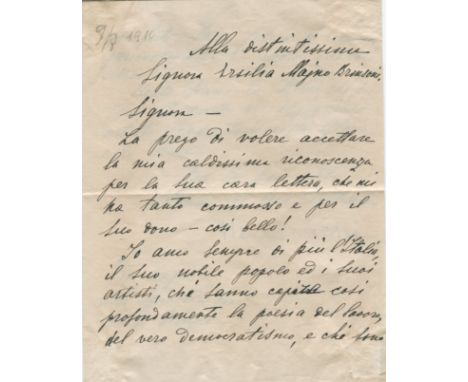 9/3 1910
Alla distintissima
Signora Ersilia Majno Bronzini.
Signora —
La prego di volere accettare
la mia caldissima riconoscenza
per la sua cara lettera, che mi
ha tanto commosso e per il
suo dono — così bello!
Io amo sempre di più l'Italia,
il suo nobile popolo ed i suoi
artisti, che sanno capire così
profondamente la poesia del lavoro,
del vero democratismo, e che sono